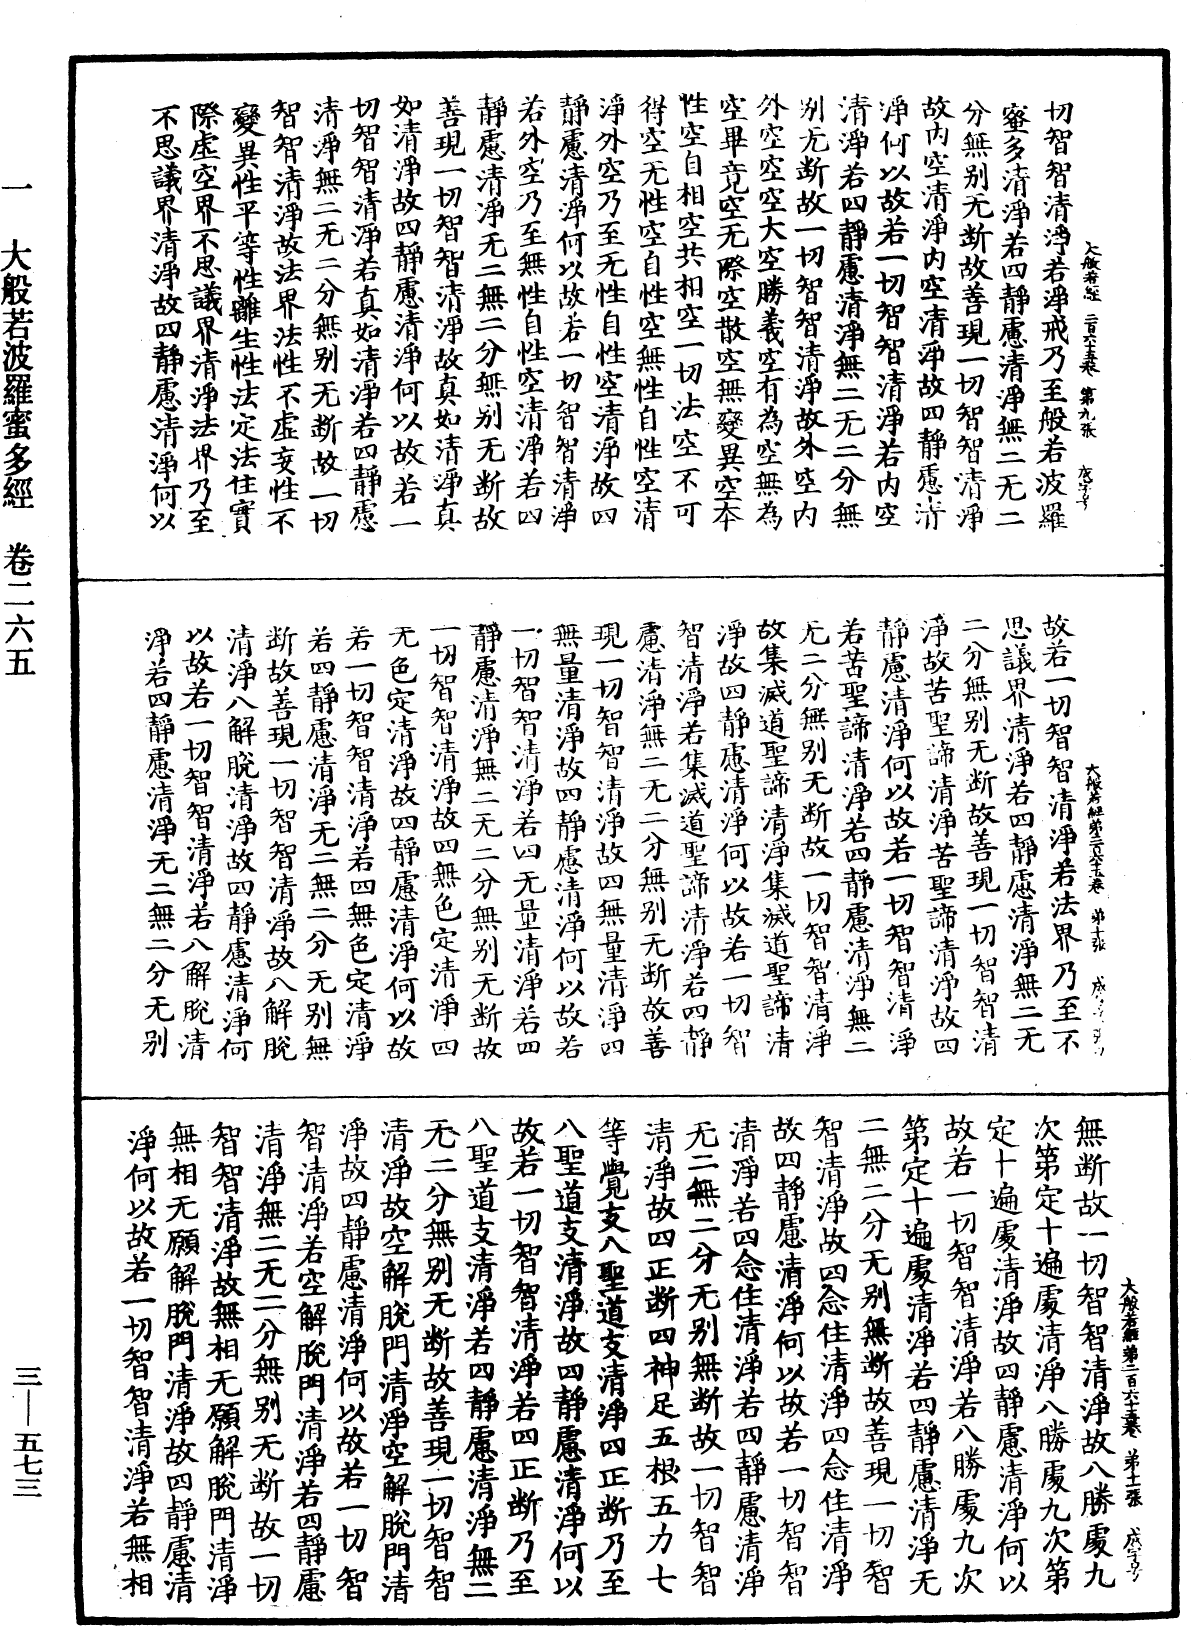 大般若經　二百六十五卷　第九張　成字号
切智智清淨若淨戒乃至般若波羅
蜜多清淨若四靜慮清淨無二无二
分無别无断故善現一切智智清淨
故内空清淨内空清淨故四靜慮清
淨何以故若一切智智清淨若内空
清淨若四靜慮清淨無二无二分無
别无断故一切智智清淨故外空内
外空空空大空勝義空有為空無為
空畢竟空无際空散空無變異空本
性空自相空共相空一切法空不可
得空无性空自性空無性自性空清
淨外空乃至无性自性空清淨故四
靜慮清淨何以故若一切智智清淨
若外空乃至無性自性空清淨若四
靜慮清淨无二無二分無别无断故
善現一切智智清淨故真如清淨真
如清淨故四靜慮清淨何以故若一
切智智清淨若真如清淨若四靜慮
清淨無二无二分無别无断故一切
智智清淨故法界法性不虛妄性不
變異性平等性離生性法定法住實
際虛空界不思議界清淨法界乃至
不思議界清淨故四靜慮清淨何以
大般若經第二百六十五卷　第十張　成字号
故若一切智智清淨若法界乃至不
思議界清淨若四靜慮清淨無二无
二分無别无断故善現一切智智清
淨故苦聖諦清淨苦聖諦清淨故四
靜慮清淨何以故若一切智智清淨
若苦聖諦清淨若四靜慮清淨無二
无二分無别无断故一切智智清淨
故集滅道聖諦清淨集滅道聖諦清
淨故四靜慮清淨何以故若一切智
智清淨若集滅道聖諦清淨若四靜
慮清淨無二无二分無别无断故善
現一切智智清淨故四無量清淨四
無量清淨故四靜慮清淨何以故若
一切智智清淨若四无量清淨若四
靜慮清淨無二无二分無别无断故
一切智智清淨故四無色定清淨四
无色定清淨故四靜慮清淨何以故
若一切智智清淨若四無色定清淨
若四靜慮清淨无二無二分无别無
断故善現一切智智清淨故八解脫
清淨八解脫清淨故四靜慮清淨何
以故若一切智智清淨若八解脫清
淨若四靜慮清淨无二無二分无别
大般若經第二百六十五卷　第十一張　成字号
無断故一切智智清淨故八勝處九
次第定十遍處清淨八勝處九次第
定十遍處清淨故四靜慮清淨何以
故若一切智智清淨若八勝處九次
第定十遍處清淨若四靜慮清淨无
二無二分无别無断故善現一切智
智清淨故四念住清淨四念住清淨
故四靜慮清淨何以故若一切智智
清淨若四念住清淨若四靜慮清淨
无二無二分无别無断故一切智智
清淨故四正断四神足五根五力七
等覺支八聖道支清淨四正断乃至
八聖道支清淨故四靜慮清淨何以
故若一切智智清淨若四正断乃至
八聖道支清淨若四靜慮清淨無二
无二分無别无断故善現一切智智
清淨故空解脫門清淨空解脫門清
淨故四靜慮清淨何以故若一切智
智清淨若空解脫門清淨若四靜慮
清淨無二无二分無别无断故一切
智智清淨故無相无願解脫門清淨
無相无願解脫門清淨故四靜慮清
淨何以故若一切智智清淨若無相
一　大般若波羅蜜多經　卷二六五
三—五七三